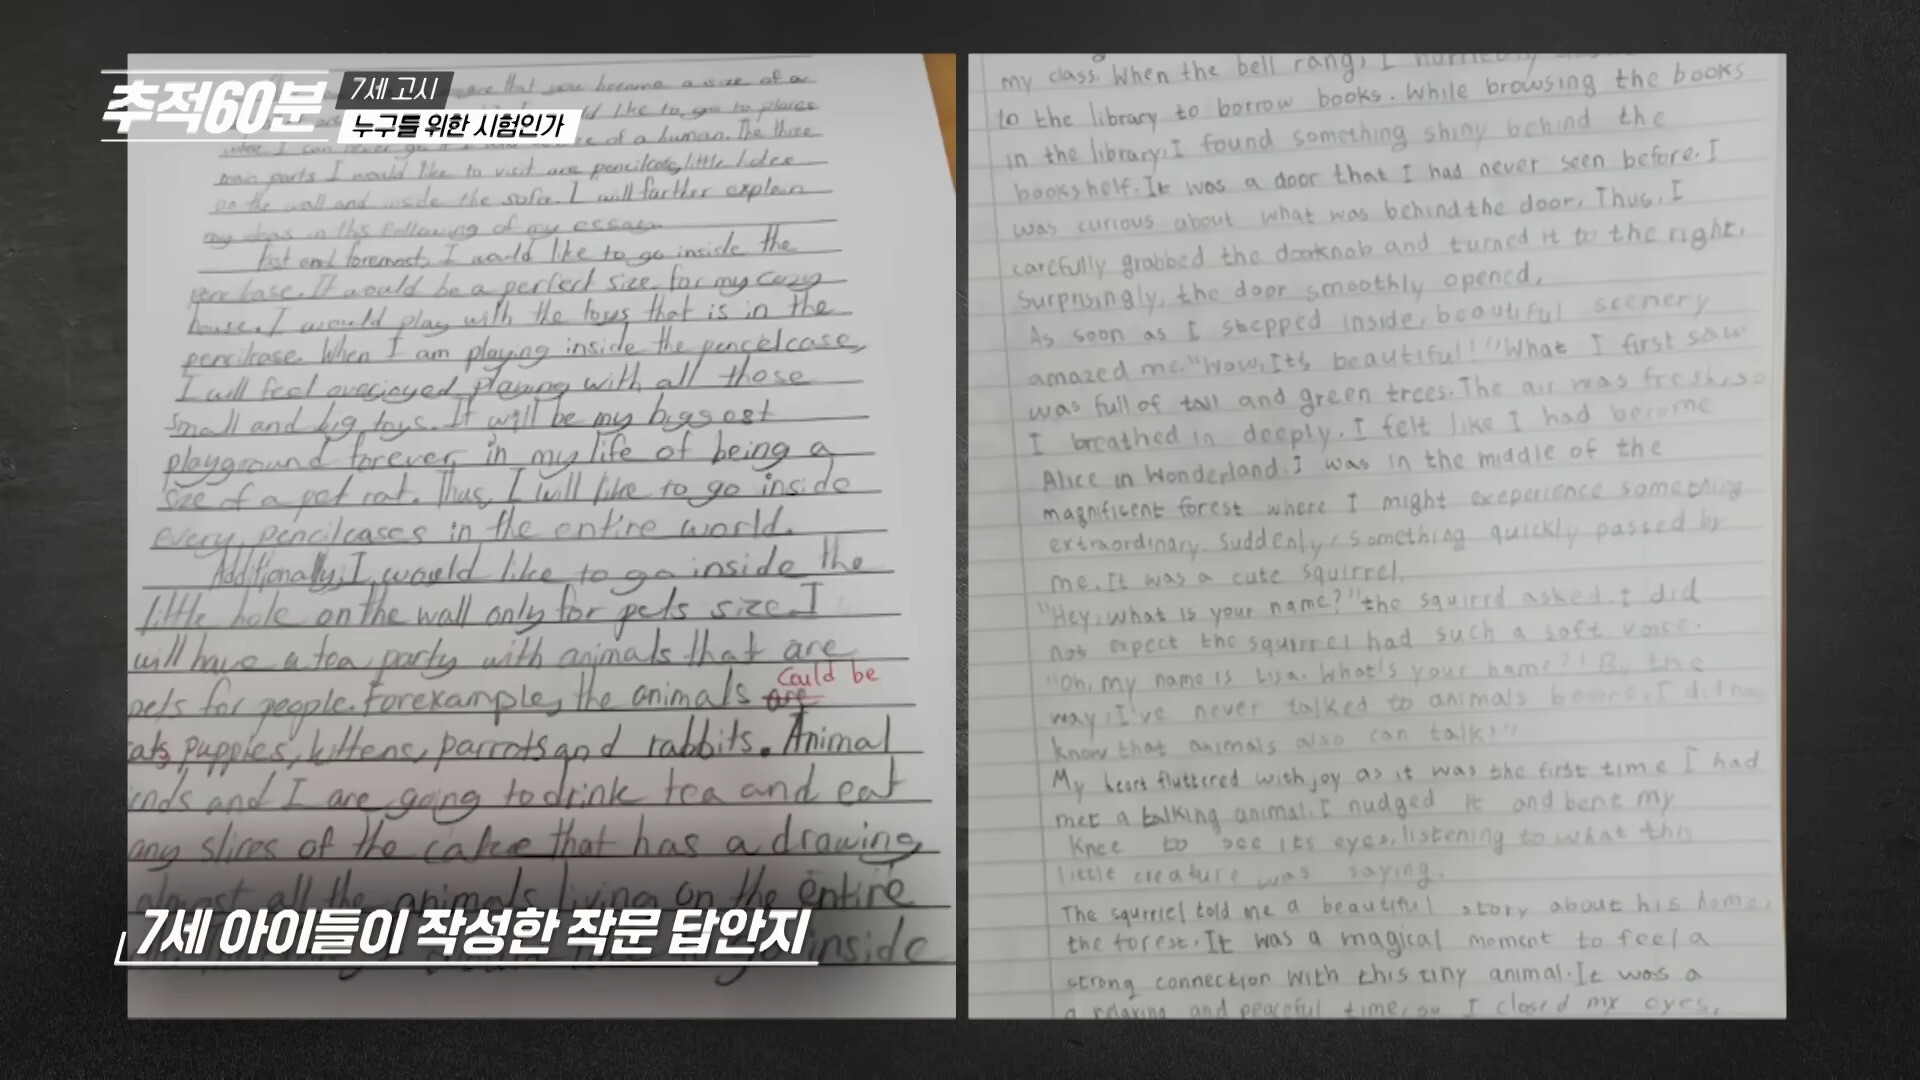 추적60분
7세 고시
누구를 위한 시험인가
that you become a size of a
like to go to places
what I can never go of a human. The three
main parts I would like to visit are pencilcases, little holes
on the wall and inside the sofa. I will farther explain
my ideas in the following of my essay.
and foremost, I would like to go inside the
It would be a perfect size for my cozy
house. I would play with the toys that is in the
pencilcase. When I am playing inside the pencelcase,
I will feel overjoyed playing with all those
small and big toys. It will be my biggest
playground forever in my life of being a
size of a pet rat. Thus, I will like to go inside
every pencilcases in the entire world.
Additionally, I would like to go inside the
little hole on the wall only for pets size. I
will have a tea party with animals that are
could be
pets for people. Forexample, the animals are
puppies, kittens, parrots and rabbits. Animal
and I are going to drink tea and eat
slices of the cake that has a drawing
almost all the animals living on the entire
inside
7세 아이들이 작성한 작문 답안지
my class. When the bell rang, I
to the library to borrow books. While browsing the books
in the library, I found something shiny behind the
bookshelf. It was a door that I had never seen before. I
was curious about what was behind the door. Thus, I
carefully grabbed the doorknob and turned it to the right.
Surprisingly, the door smoothly opened.
As soon as I stepped inside, beautiful scenery
amazed me. "Wow, It's beautiful!" What I first saw
was full of tall and green trees. The air was fresh, so
I breathed in deeply. I felt like I had become
Alice in Wonderland. I was in the middle of the
magnificent forest where I might exeperience something
extraordinary. Suddenly, something quickly passed by
me. It was a cute squirrel.
"Hey, what is your name?" the squirrel asked. I did
not expect the squirrel had such a soft voice.
"Oh, my name is Lisa. What's your name? By the
way, I've never talked to animals before. I did no
know that animals also can talk!"
My heart fluttered with joy as it was the first time I had
met a talking animal. I nudged it and bent my
knee to see its eyes, listening to what this
little creature was saying.
The squirrel told me a beautiful story about his home,
the forest. It was a magical moment to feel a
strong connection with this tiny animal. It was a
a relaxing and peaceful time, so I closed my eyes,